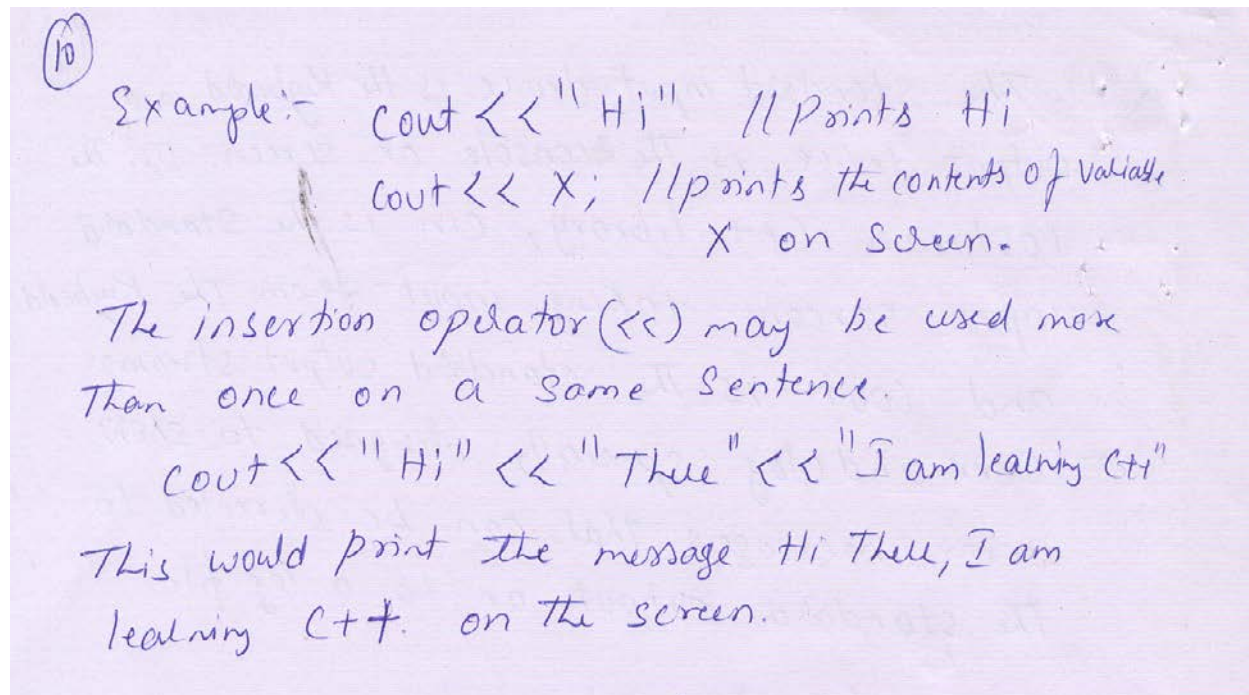 10
Example:- cout << "Hi" //Prints Hi
cout << X; //prints the contents of variable
X on Screen.
The insertion operator (<<) may be used more
Than once on a same Sentence
cout << "Hi" << "There" << "I am learning C++"
This would print the message Hi There, I am
learning C++. on the screen.